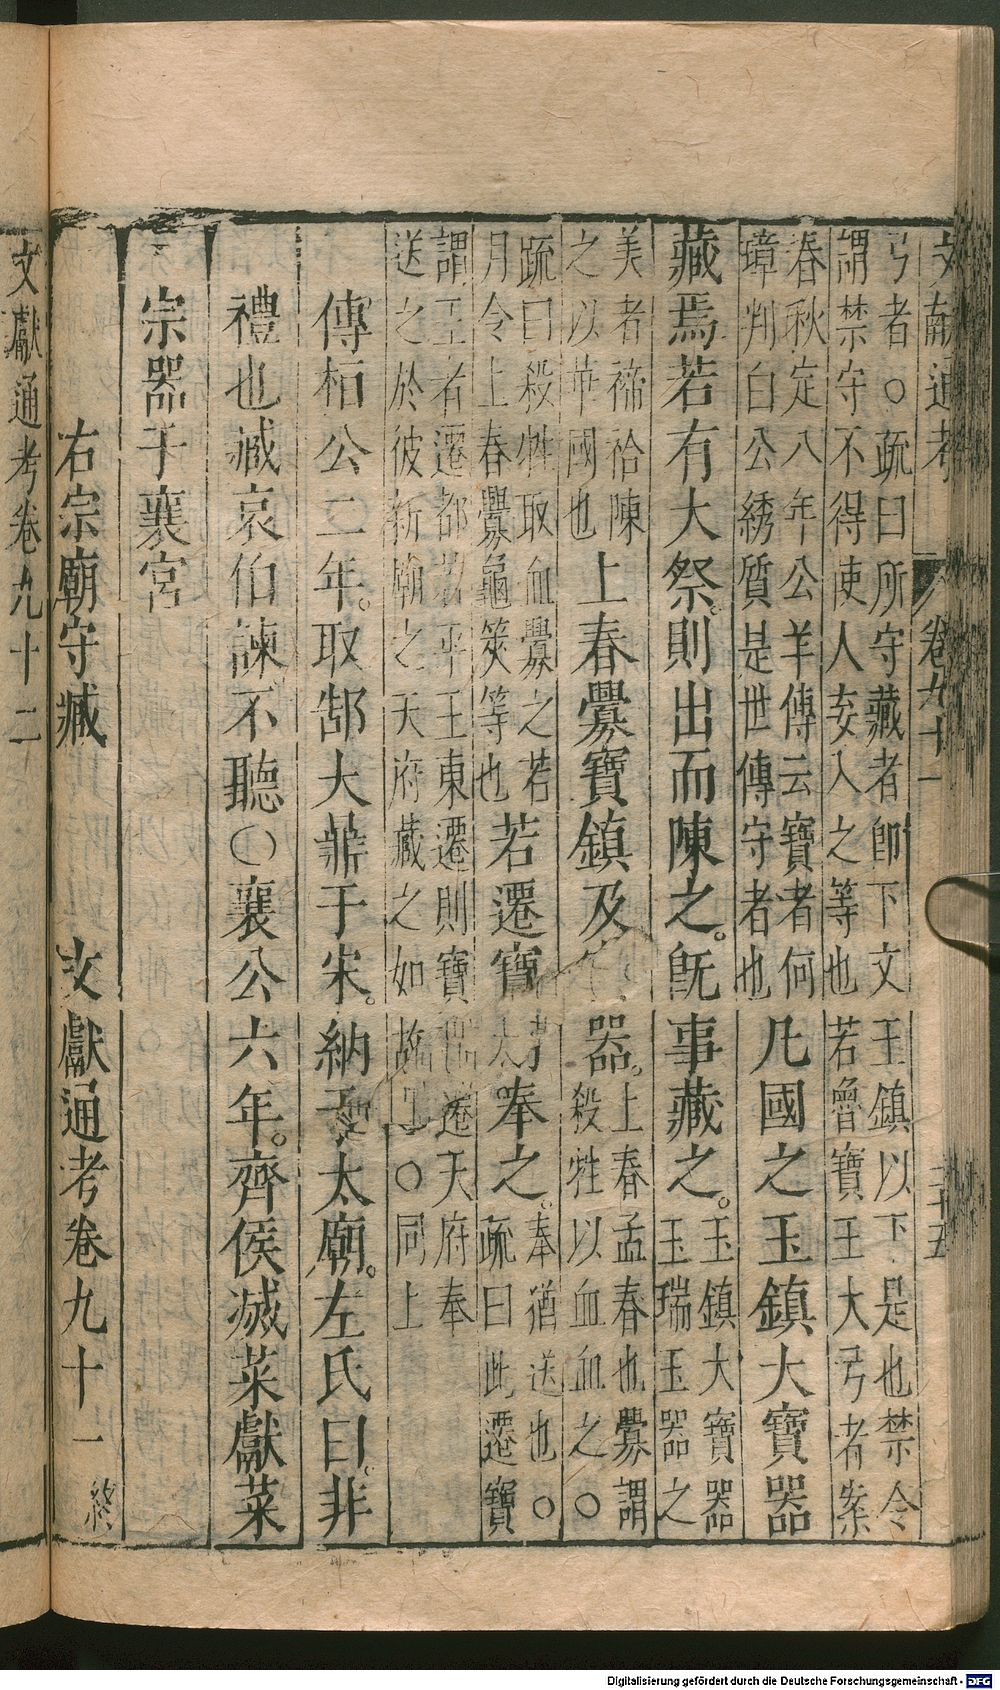 文獻通考 卷九十一 二十五
弓者○疏曰所守藏者卽下文玉鎮以下是也禁令
謂禁守不得使人妄入之等也若魯寶玉大弓者案
春秋定八年公羊傳云寶者何
璋判白弓繡質是世傳守者也
凡國之玉鎮大寶器
藏焉若有大祭則出而陳之旣事藏之
玉鎮大寶器
玉瑞玉器之
美者禘祫陳
之以華國也
上春釁寶鎮及 器
上春孟春也釁謂
殺牲以血血之○
疏曰殺牲取血釁之若
月令上春釁龜筴等也
若遷寶 奉之
奉猶送也○
疏曰此遷寶
謂王者遷都若平王東遷則寶 遷天府奉
送之於彼新廟之天府藏之如故 ○同上
傳桓公二年取郜大鼎于宋納于太廟左氏曰非
禮也臧哀伯諫不聽○襄公六年齊侯滅萊獻萊
宗器于襄宮
右宗廟守藏
文獻通考卷九十一 終
文獻通考卷九十二
Digitalisierung gefördert durch die Deutsche Forschungsgemeinschaft - DFG